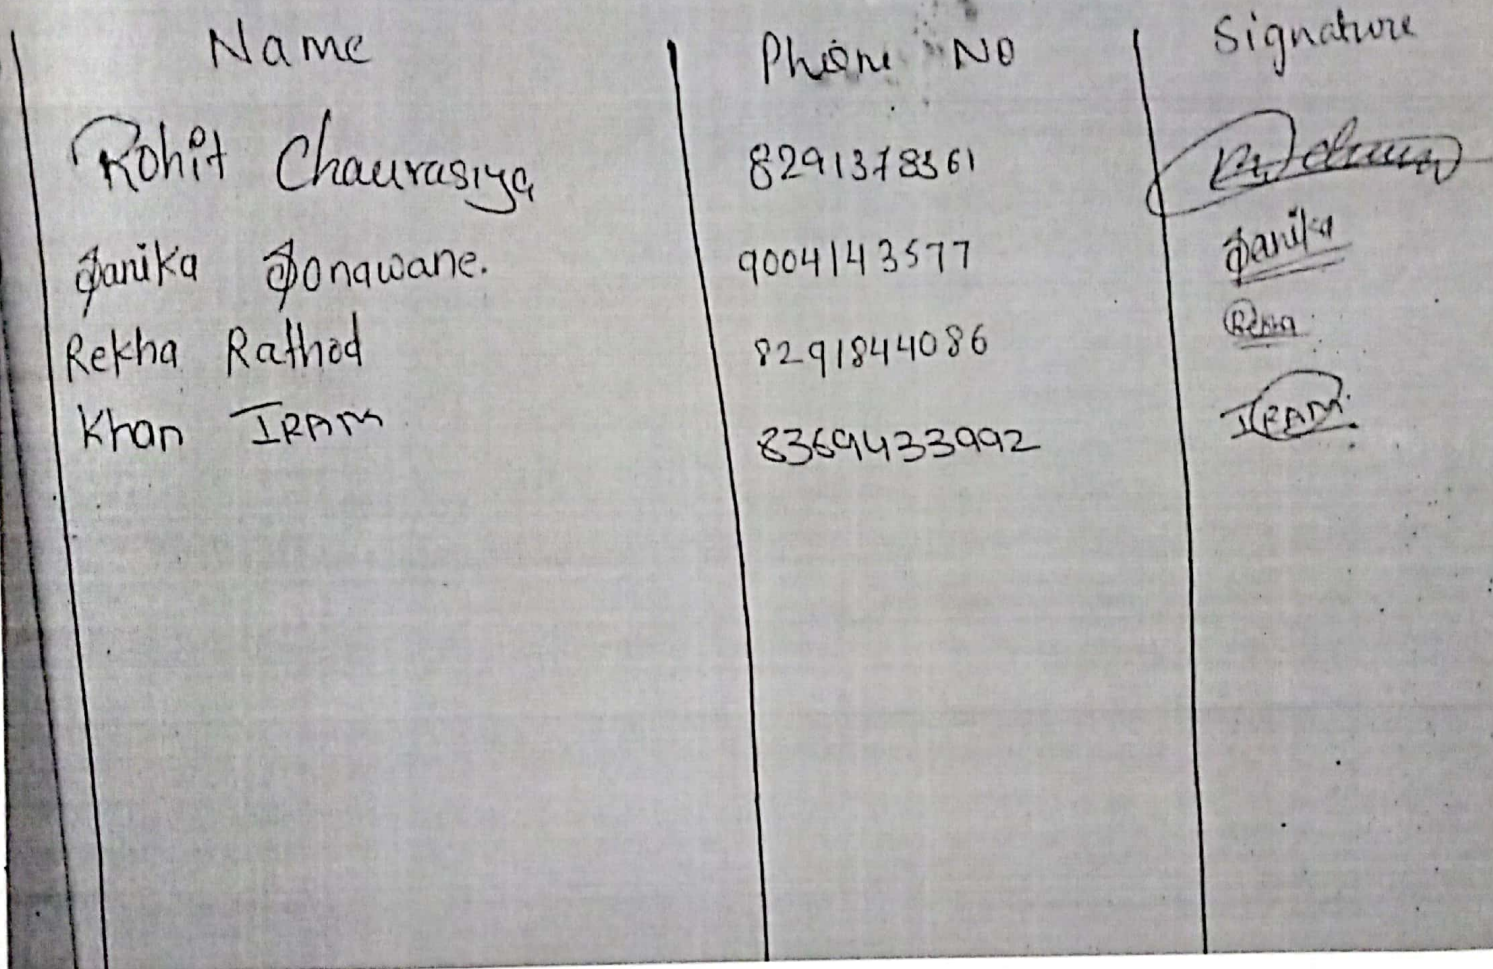 Name Phone No Signature
Rohit Chaurasiya 8291378361
Sanika Sonawane. 9004143577 Sanika
Rekha Rathod 8291844086 Rekha
Khan IRAM 8369433992 IRAM.